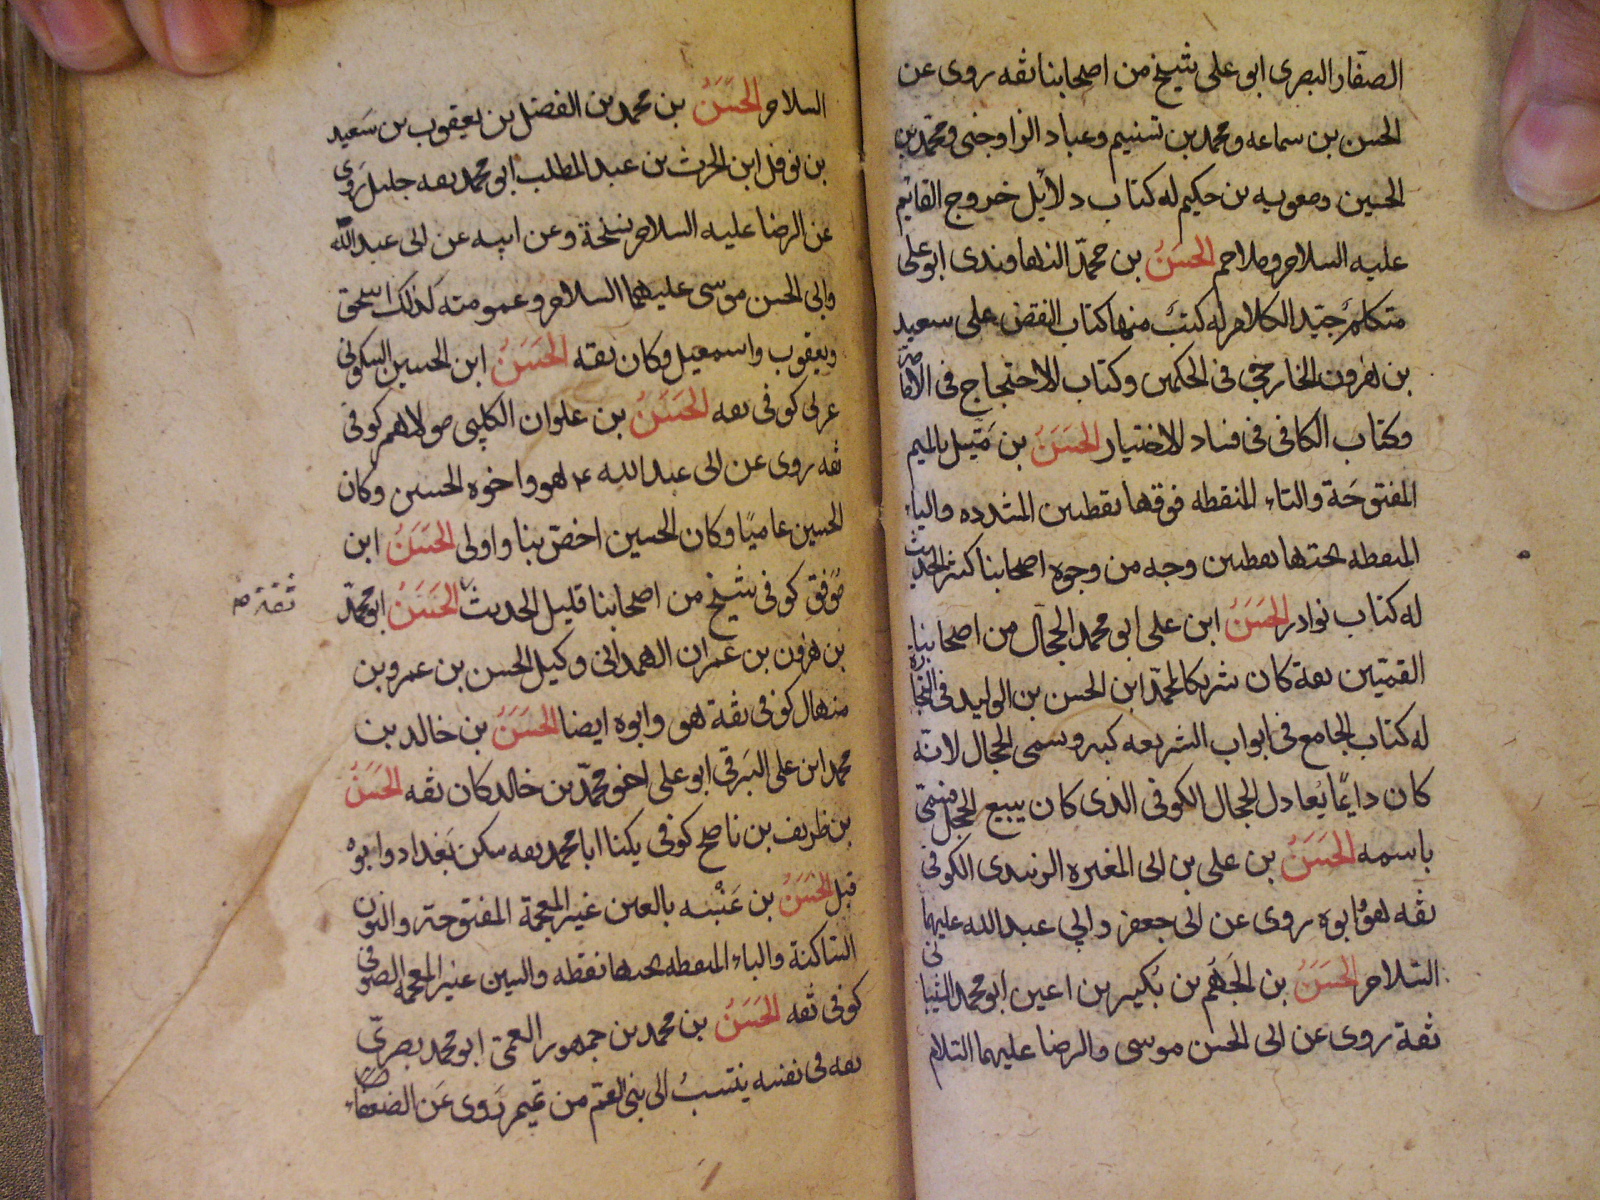 الصفار البصرى ابو على شيخ من اصحابنا ثقه روى عن
الحسن بن سماعه ومحمد بن تسنيم وعباد الرواجنى ومحمد بن
الحسين ومعويه بن حكيم له كتاب دلائل خروج القائم
عليه السلام وملاحم الحسن بن محمد النهاوندى ابو على
متكلم جيد الكلام له كتب منها كتاب النقض على سعيد
بن هرون الخارجى فى الحكمين وكتاب الاحتجاج فى الامامة
وكتاب الكافى فى فساد الاختيار الحسن بن متيل بالميم
المفتوحة والتاء المنقطه فوقها نقطتين المشدده والياء
المنقطه تحتها نقطتين وجه من وجوه اصحابنا كثير الحديث
له كتاب نوادر الحسن ابن على ابو محمد الحجال من اصحابنا
القميين ثقة كان شريكا لمحمد ابن الحسن بن الوليد فى التجارة
له كتاب الجامع فى ابواب الشريعه كبير وسمى الحجال لانه
كان دائما يعادل الحجال الكوفى الذى كان يبيع الحجل فسمى
باسمه الحسن بن على بن ابى المغيره الزبيدى الكوفى
ثقه هو وابوه روى عن ابى جعفر وابي عبد الله عليهما
السلام الحسن بن الجهم بن بكير بن اعين ابو محمد الشيبانى
ثقة روى عن ابى الحسن موسى والرضا عليهما السلام
السلام الحسن بن محمد بن الفضل بن يعقوب بن سعيد
بن نوفل ابن الحرث بن عبد المطلب ابو محمد ثقه جليل روى
عن الرضا عليه السلام نسخة وعن ابيه عن ابى عبد الله
وابى الحسن موسى عليهما السلام وعمومته كذلك اسحق
ويعقوب واسمعيل وكان ثقه الحسن ابن الحسين السكونى
عربى كوفى ثقه الحسن بن علوان الكلبى مولاهم كوفى
ثقه روى عن ابى عبد الله ع هو واخوه الحسين وكان
الحسين عاميا وكان الحسين اخص بنا واولى الحسن ابن
موفق كوفى شيخ من اصحابنا قليل الحديث الحسن ابو محمد
ثقة
بن هرون بن عمران الهمدانى وكيل الحسن بن عمرو بن
منهال كوفى ثقة هو وابوه ايضا الحسن بن خالد بن
محمد ابن على البرقى ابو على اخو محمد بن خالد كان ثقه الحسن
بن ظريف بن ناصح كوفى يكنا ابا محمد ثقه سكن بغداد وابوه
قبل الحسن بن عنبسه بالعين غير المعجمة المفتوحة والنون
الساكنة والباء المنقطه تحتها نقطه والسين غير المعجمه الصوفى
كوفى ثقه الحسن بن محمد بن جمهور العمى ابو محمد بصرى
ثقه فى نفسه ينتسب الى بنى العم من تميم روى عن الضعفاء